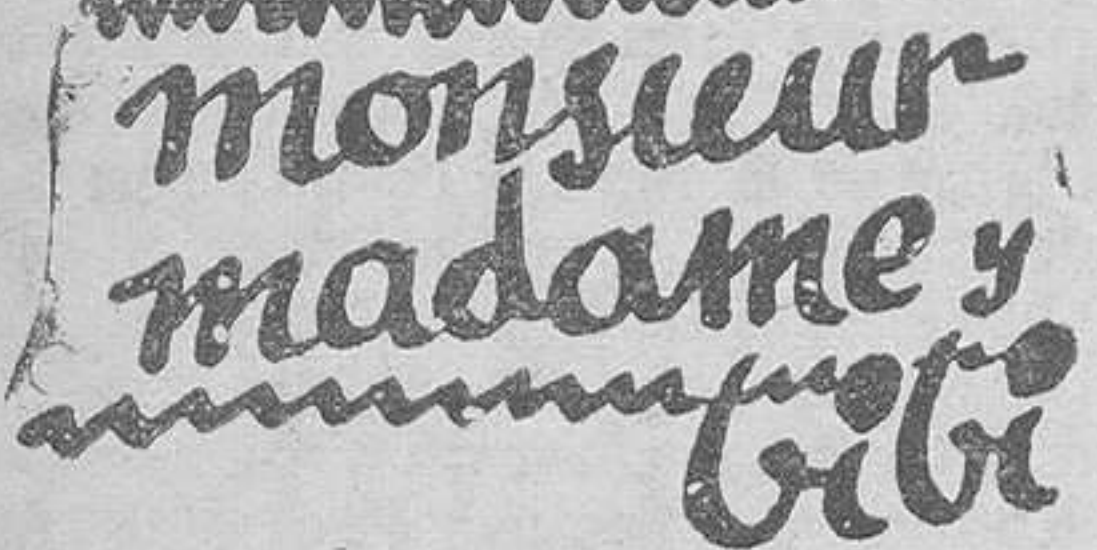 monsieur
madame y
bibi